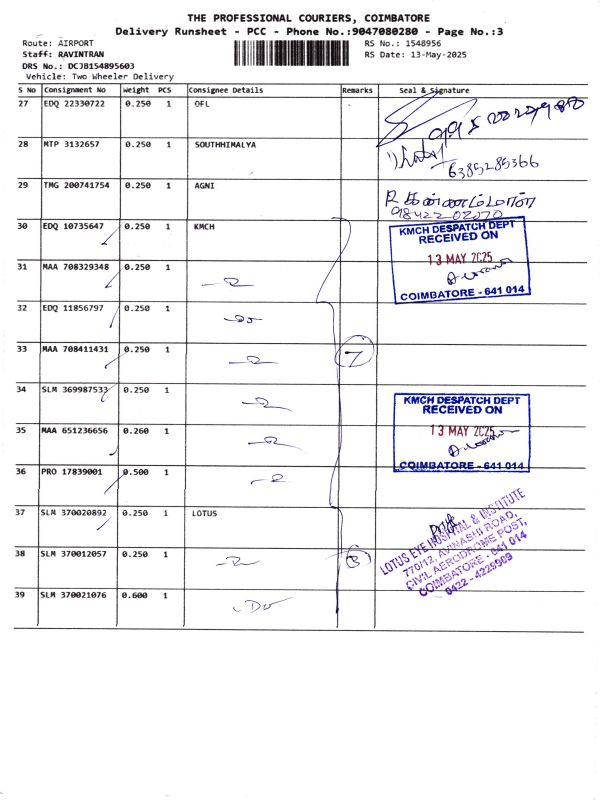 THE PROFESSIONAL COURIERS, COIMBATORE
Delivery Runsheet - PCC - Phone No.:9047080280 - Page No.:3
Route: AIRPORT RS No.: 1548956
Staff: RAVINTRAN RS Date: 13-May-2025
DRS No.: DCJB154895603
Vehicle: Two Wheeler Delivery
S No Consignment No Weight PCS Consignee Details Remarks Seal & Signature
27 EDQ 22330722 0.250 1 OFL
28 MTP 3132657 0.250 1 SOUTHHIMALYA
6385285366
29 TMG 200741754 0.250 1 AGNI
98422 02070
30 EDQ 10735647 0.250 1 KMCH
KMCH DESPATCH DEPT
RECEIVED ON
13 MAY 2025
COIMBATORE - 641 014
31 MAA 708329348 0.250 1
32 EDQ 11856797 0.250 1 Do
33 MAA 708411431 0.250 1 7
34 SLM 369987533 0.250 1
KMCH DESPATCH DEPT
RECEIVED ON
13 MAY 2025
COIMBATORE - 641 014
35 MAA 651236656 0.260 1
36 PRO 17839001 0.500 1
37 SLM 370020892 0.250 1 LOTUS
LOTUS EYE HOSPITAL & INSTITUTE
770/12, AVINASHI ROAD,
CIVIL AERODROME POST,
COIMBATORE - 641 014
0422 - 4229999
38 SLM 370012057 0.250 1 3
39 SLM 370021076 0.600 1 Do